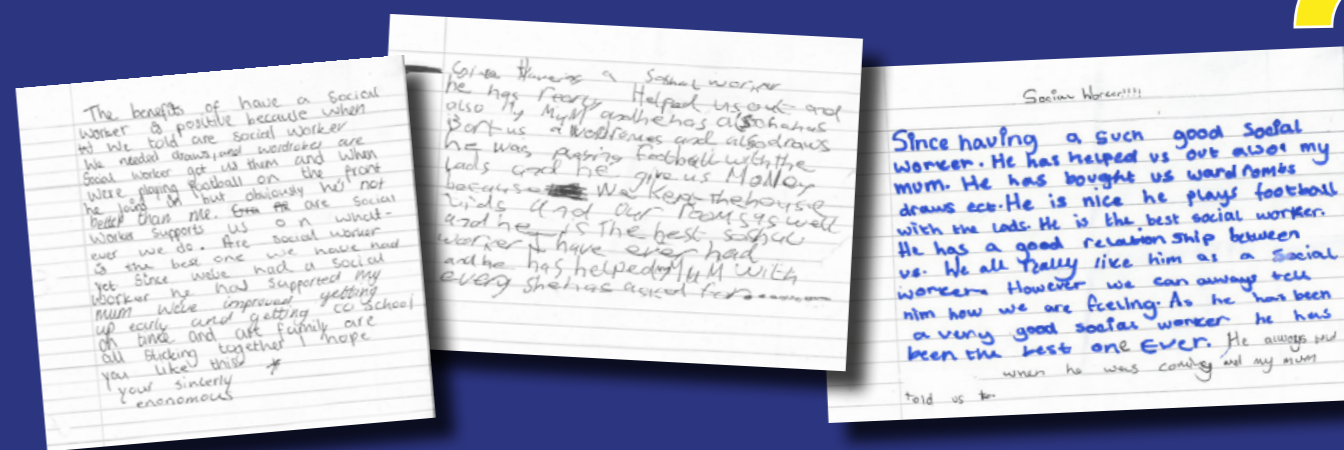 The benefits of have a social
worker is positive because when
we told are social worker
we needed draws, and wardrobes are
social worker got us them and when
were playing football on the front
he joins in but obviously he's not
better than me. are social
worker supports us on what-
ever we do. Are social worker
is the best one we have had
yet Since weve had a social
worker he had supported my
mum weve improved getting
up early and getting to School
on time and are family are
all sticking together I hope
you like this
your sincerly
enonomous
Since Haveing a Soshul worker
he has reary Helped us out and
also My MyM and he has
Bort us wardromes and also draws
he was playing football with the
lads and he give us MoNey
because We Kept the house
and our rooms as well
and he is The best soshul
worker I have ever had
and he has helped My MuM with
every she has asked for
Social Worker!!!!
Since having a such good Social
worker. He has helped us out also my
mum. He has bought us wardrombs
draws ect. He is nice he plays football
with the lads. He is the best social worker.
He has a good relationship between
us. We all really like him as a Social
worker. However we can always tell
him how we are feeling. As he has been
a very good social worker he has
been the best one Ever. He always
when he was coming and my mum
told us to